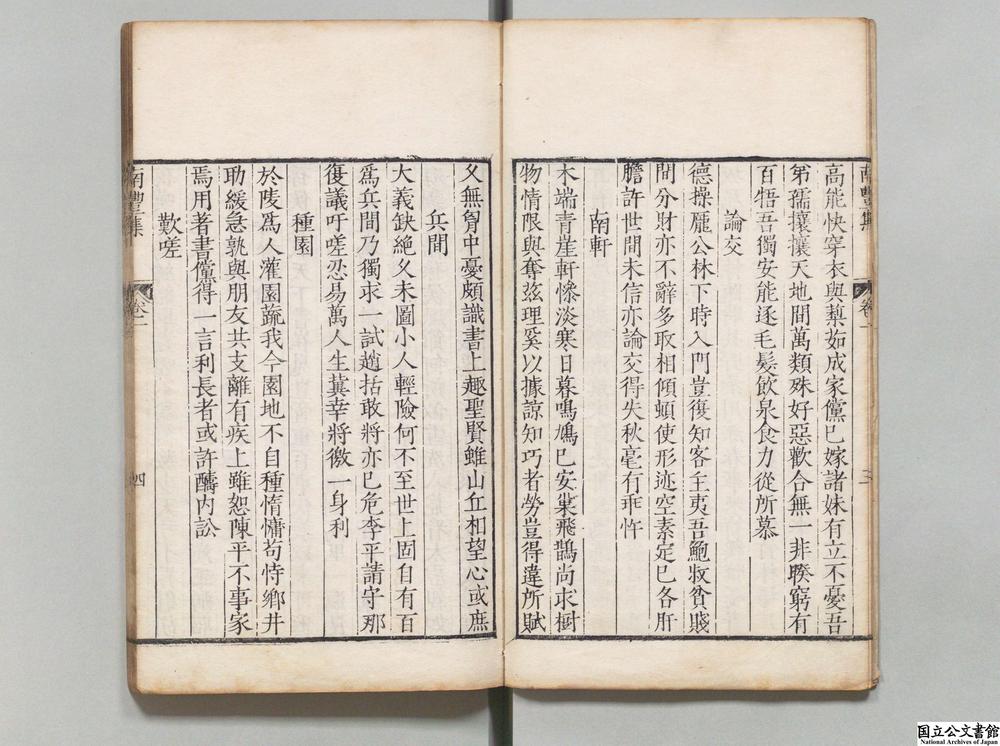 高能快穿衣與藜茹成家儻已嫁諸妹有立不憂吾
第孺攘攘天地間萬類殊好惡歡合無一非睽窮有
百牾吾獨安能逐毛髮飲泉食力從所慕
論交
德操龐公林下時入門豈復知客主夷吾鮑牧貧賤
間分財亦不辭多取相傾頓使形迹空素定已各肝
膽許世間未信亦論交得失秋毫有乖忤
南軒
木端青崖軒慘淡寒日暮鳴鳩已安巢飛鵲尚求樹
物情限與奪玆理奚以據諒知巧者勞豈得違所賦
南豐集
卷一
三
又無胷中憂頗識書上趣聖賢雖山丘相望心或庶
兵間
大義缺絶久未圖小人輕險何不至世上固自有百
為兵間乃獨求一試趙括敢將亦已危李平請守那
復議吁嗟忍易萬人生冀幸將徼一身利
種園
於陵為人灌園蔬我今園地不自種惰慵苟恃鄉井
助緩急孰與朋友共支離有疾上雖恕陳平不事家
焉用著書儻得一言利長者或許醻内訟
歎嗟
南豐集
卷一
四
国立公文書館
National Archives of Japan